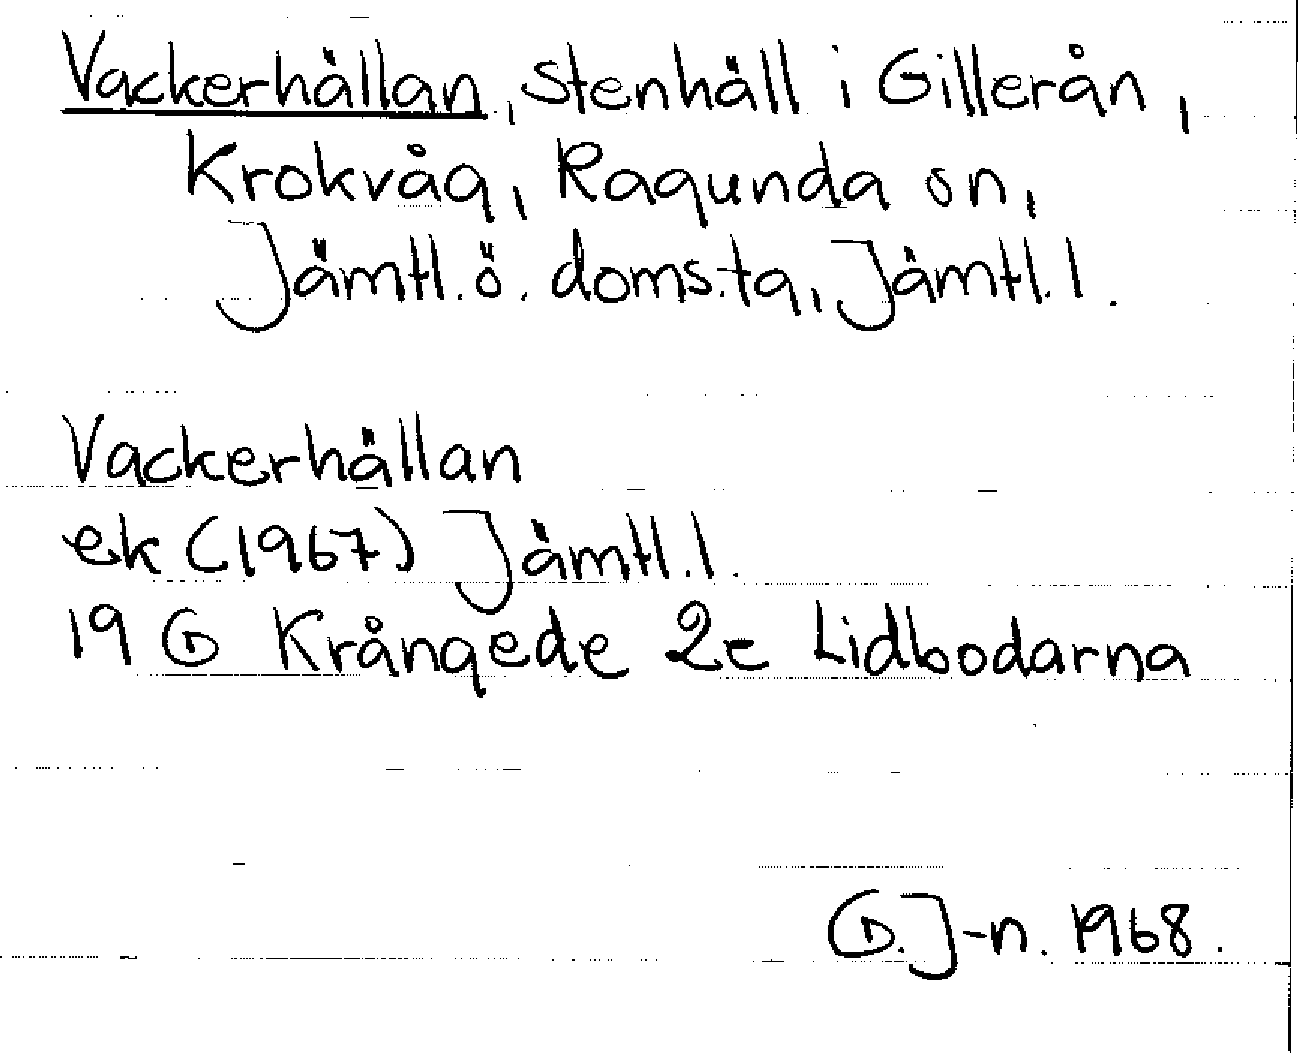 Vackerhällan, stenhäll i Gillerån,
Krokvåg, Ragunda sn,
Jämtl. ö. doms.tg, Jämtl. l.
Vackerhällan
ek (1967) Jämtl. l.
19 G Krångede 2e Lidbodarna
G. J-n. 1968.